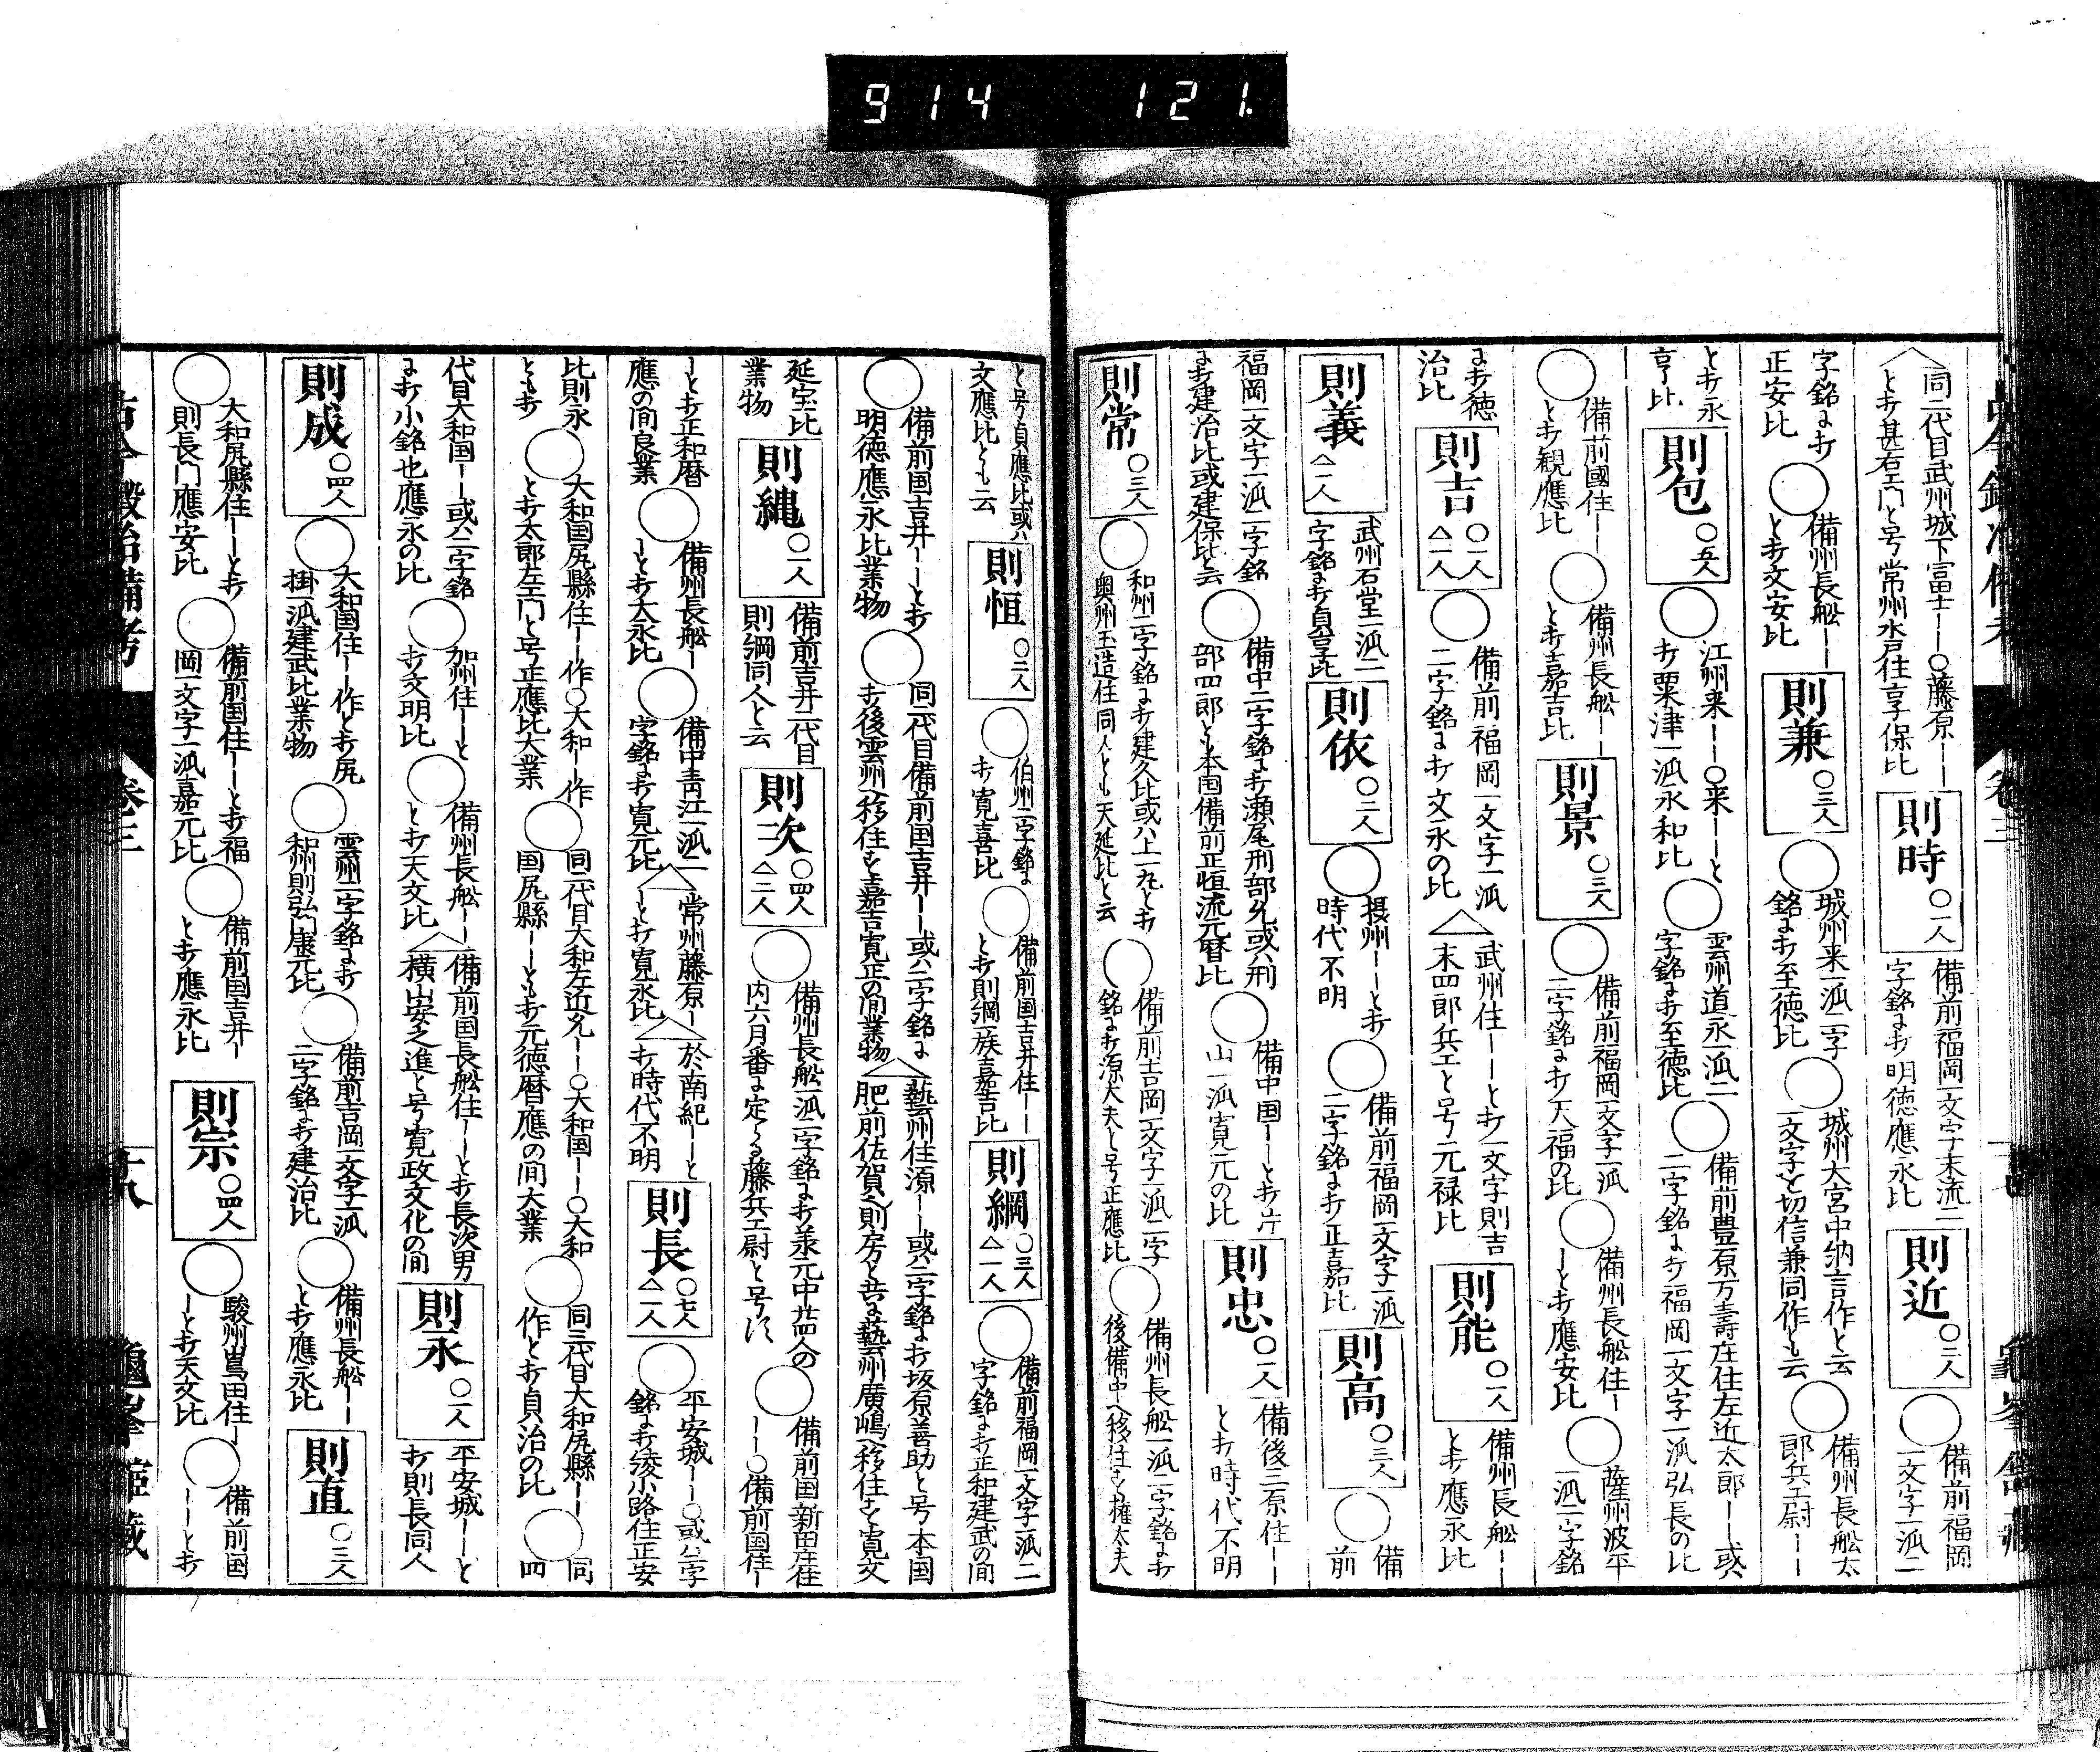 914 121.
同二代目武州城下富士ーー〇藤原ーー
とオ甚右エ門と号常州水戸住享保比
則時 〇一人
備前福岡一文字末流二
字銘ニオ明徳應永比
則近 〇二人
備前福岡
一文字一派二
字銘ニオ
正安比
備州長舩ー
とオ文安比
則兼 〇三人
城州来一派二字
銘ニオ至徳比
城州大宮中納言作と云
一文字と切信兼同作と云
備州長舩太
郎兵エ尉ーー
とオ永
享比
則包 〇五人
江州来ーー〇来ーーと
オ粟津一派永和比
雲州道永一派二
字銘ニオ至徳比
備前豊原万壽在住左近太郎ーー或ハ
二字銘ニオ福岡一文字一派弘長の比
備前國住ー
とオ観應比
備州長舩ー
とオ嘉吉比
則景 〇三人
備前福岡一文字一派
二字銘ニオ天福の比
備州長舩住ー
ーとオ應安比
薩州波平
一派二字銘
ニオ徳
治比
則吉 〇一人 △一人
備前福岡一文字一派
二字銘ニオ文永の比
武州住ーーとオ一文字則吉
末四郎兵エと号元禄比
則能 〇一人
備州長舩ー
とオ應永比
則義 △一人
武州石堂一派二
字銘ニオ貞享比
則依 〇二人
摂州ーーとオ
時代不明
備前福岡一文字一派
二字銘ニオ正嘉比
則高 〇三人
備
前
福岡一文字一派二字銘
ニオ建治比或建保比と云
備中二字銘ニオ瀬尾刑部允或ハ刑
部四郎とも本国備前正恒流元暦比
備中国ーーとオ片
山一派寛元の比
則忠 〇一人
備後三原住ーー
とオ時代不明
則常 〇三人
和州二字銘ニオ建久比或ハ上一丸とオ
奥州玉造住同人とも天延比と云
備前吉岡一文字一派二字
銘ニオ源大夫と号正應比
備州長舩一派二字銘ニオ
後備中へ移住す権太夫
と号貞應比或ハ
文應比とも云
則恒 〇二人
伯州二字銘ニ
オ寛喜比
備前国吉井住ーー
とオ則綱一族嘉吉比
則綱 〇三人 △一人
備前福岡一文字一派二
字銘ニオ正和建武の間
備前国吉井ーーとオ
明徳應永比業物
同二代目備前国吉井ーー或ハ二字銘ニ
オ後雲州へ移住す嘉吉寛正の間業物
藝州住源ーー或ハ二字銘ニオ坂原善助と号本国
肥前佐賀へ則房と共ニ藝州廣嶋へ移住す寛文
延宝比
業物
則縄 〇一人
備前吉井二代目
則綱同人と云
則次 〇四人 △二人
備州長舩一派二字銘ニオ承元中廿四人の
内六月番ニ定る藤兵エ尉と号ス
備前国新田庄住
ーー〇備前国住ー
ーとオ正和暦
應の間良業
備州長舩ー
ーとオ大永比
備中青江一派二
字銘ニオ寛元比
常州藤原ー
ーとオ寛永比
於南紀ーーと
オ時代不明
則長 〇七人 △一人
平安城ーー〇或ハ二字
銘ニオ綾小路住正安
比則永
ともオ
大和国尻縣住ーー作〇大和ーー作
とオ太郎左エ門と号正應比大業
同二代目大和左近允ーー〇大和国ーー〇大和
国尻縣ーーともオ元徳暦應の間大業
同三代目大和尻縣ーー
作とオ貞治の比
同
四
代目大和国ーー或ハ二字銘
ニオ小銘也應永の比
加州住ーーと
オ文明比
備州長舩ーー
とオ天文比
備前国長舩住ーーとオ長次男
横山安之進と号寛政文化の間
則永 〇一人
平安城ーーと
オ則長同人
則成 〇四人
大和国住ーー作とオ尻
掛一派建武比業物
雲州二字銘ニオ
和州則弘門康元比
備前吉岡一文字一派
二字銘ニオ建治比
備州長舩ーー
とオ應永比
則直 〇三人
大和尻縣住ーーとオ
則長門應安比
備前国住ーーとオ福
岡一文字一派嘉元比
備前国吉井ー
とオ應永比
則宗 〇四人
駿州嶌田住ー
ーとオ天文比
備前国
ーーとオ
古今鍛冶備考 巻三 十八